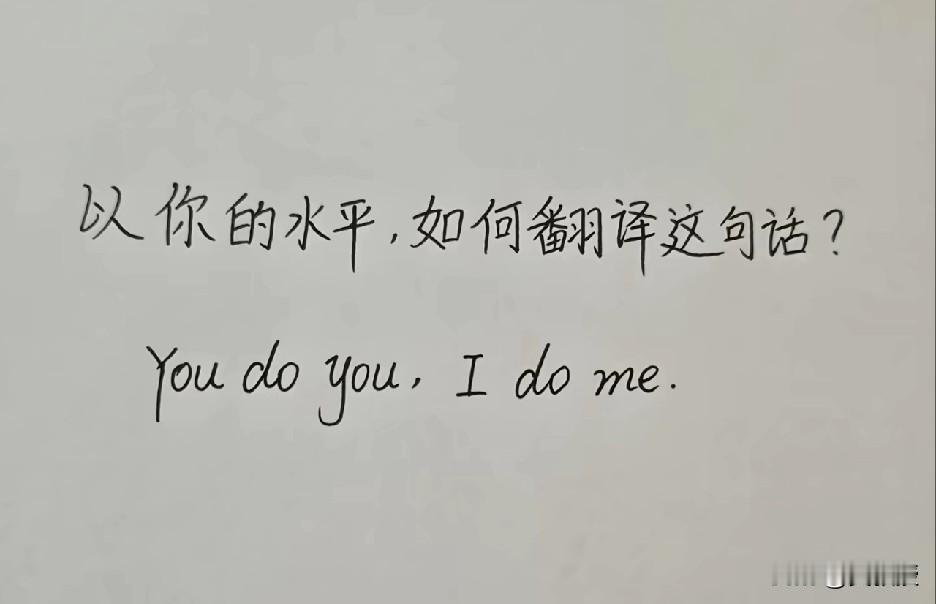 以你的水平,如何翻译这句话?
You do you, I do me.